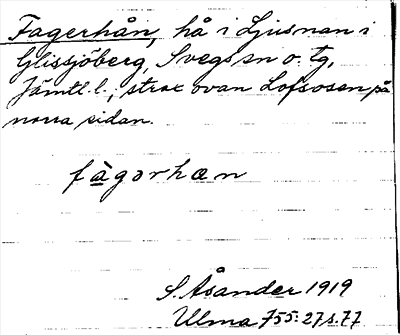 Fagerhån, hå i Ljusnan i
Glissjöberg, Svegs sn o. tg,
Jämtl. l., strax ovan Lofsosen på
norra sidan.
fàgərhæn
S. Åsander 1919
Ulma 755: 27 s. 77